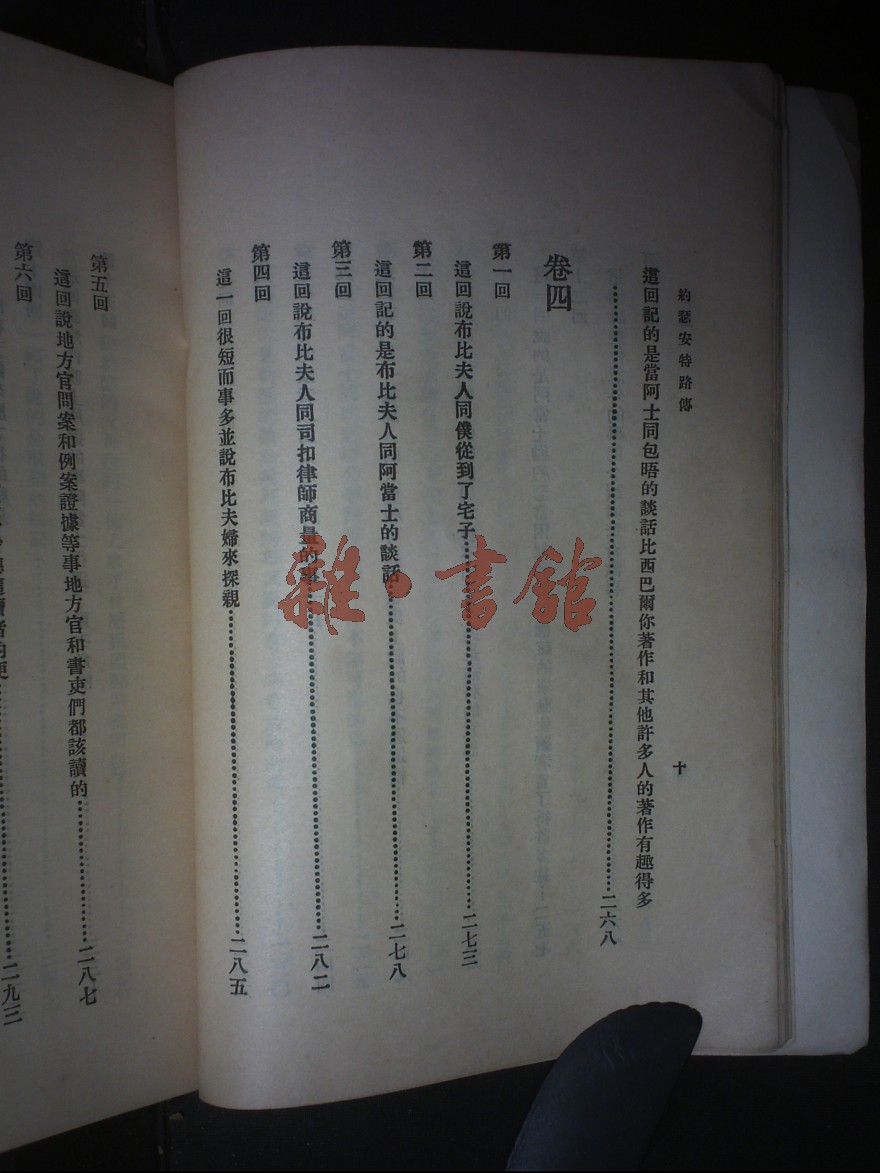 約瑟安特路傳
十
這回記的是當阿士同包晤的談話比西巴爾你著作和其他許多人的著作有趣得多
二六八
卷四
第一回
這回說布比夫人同僕從到了宅子二七三
第二回
這回記的是布比夫人同阿當士的談話二七八
第三回
這回說布比夫人同司扣律師商量的事二八二
第四回
這一回很短而事多並說布比夫婦來探親二八五
第五回
這回說地方官問案和例案證據等事地方官和書吏們都該讀的二八七
第六回
二九三
雜·書館